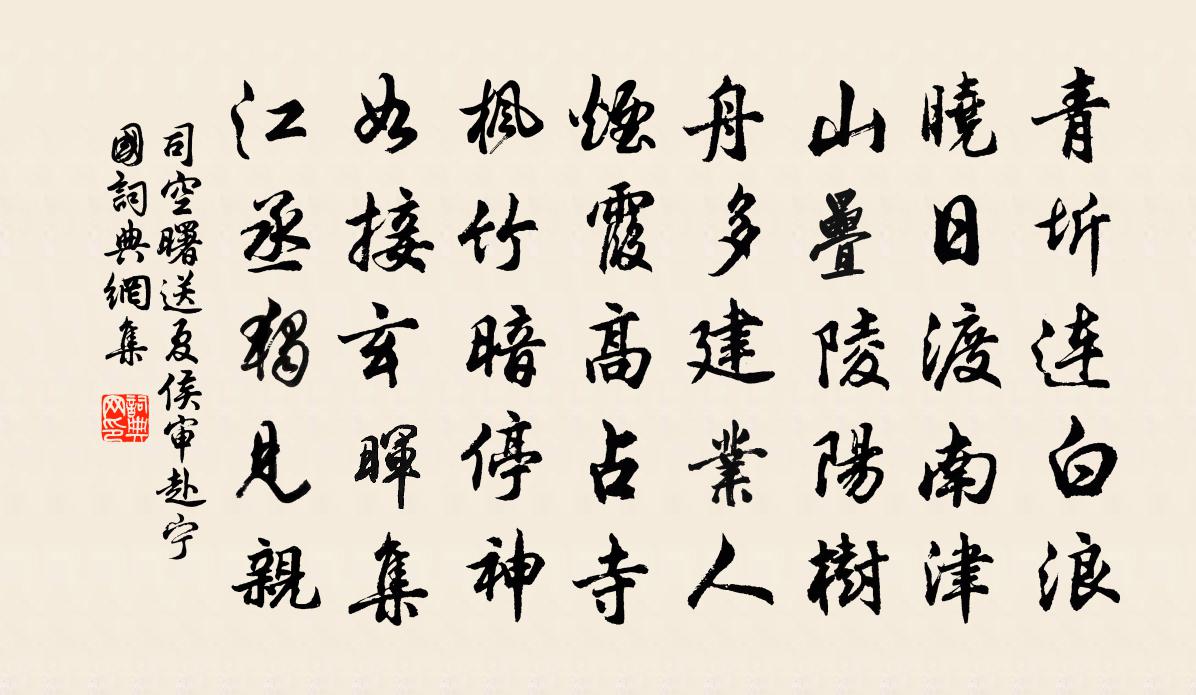 青圻連白浪
曉日渡南津
山疊陵陽樹
舟多建業人
煙霞高占寺
楓竹暗停神
如接玄暉集
江丞獨見親
司空曙送夏侯审赴宁
國詞典網集
詞典网印